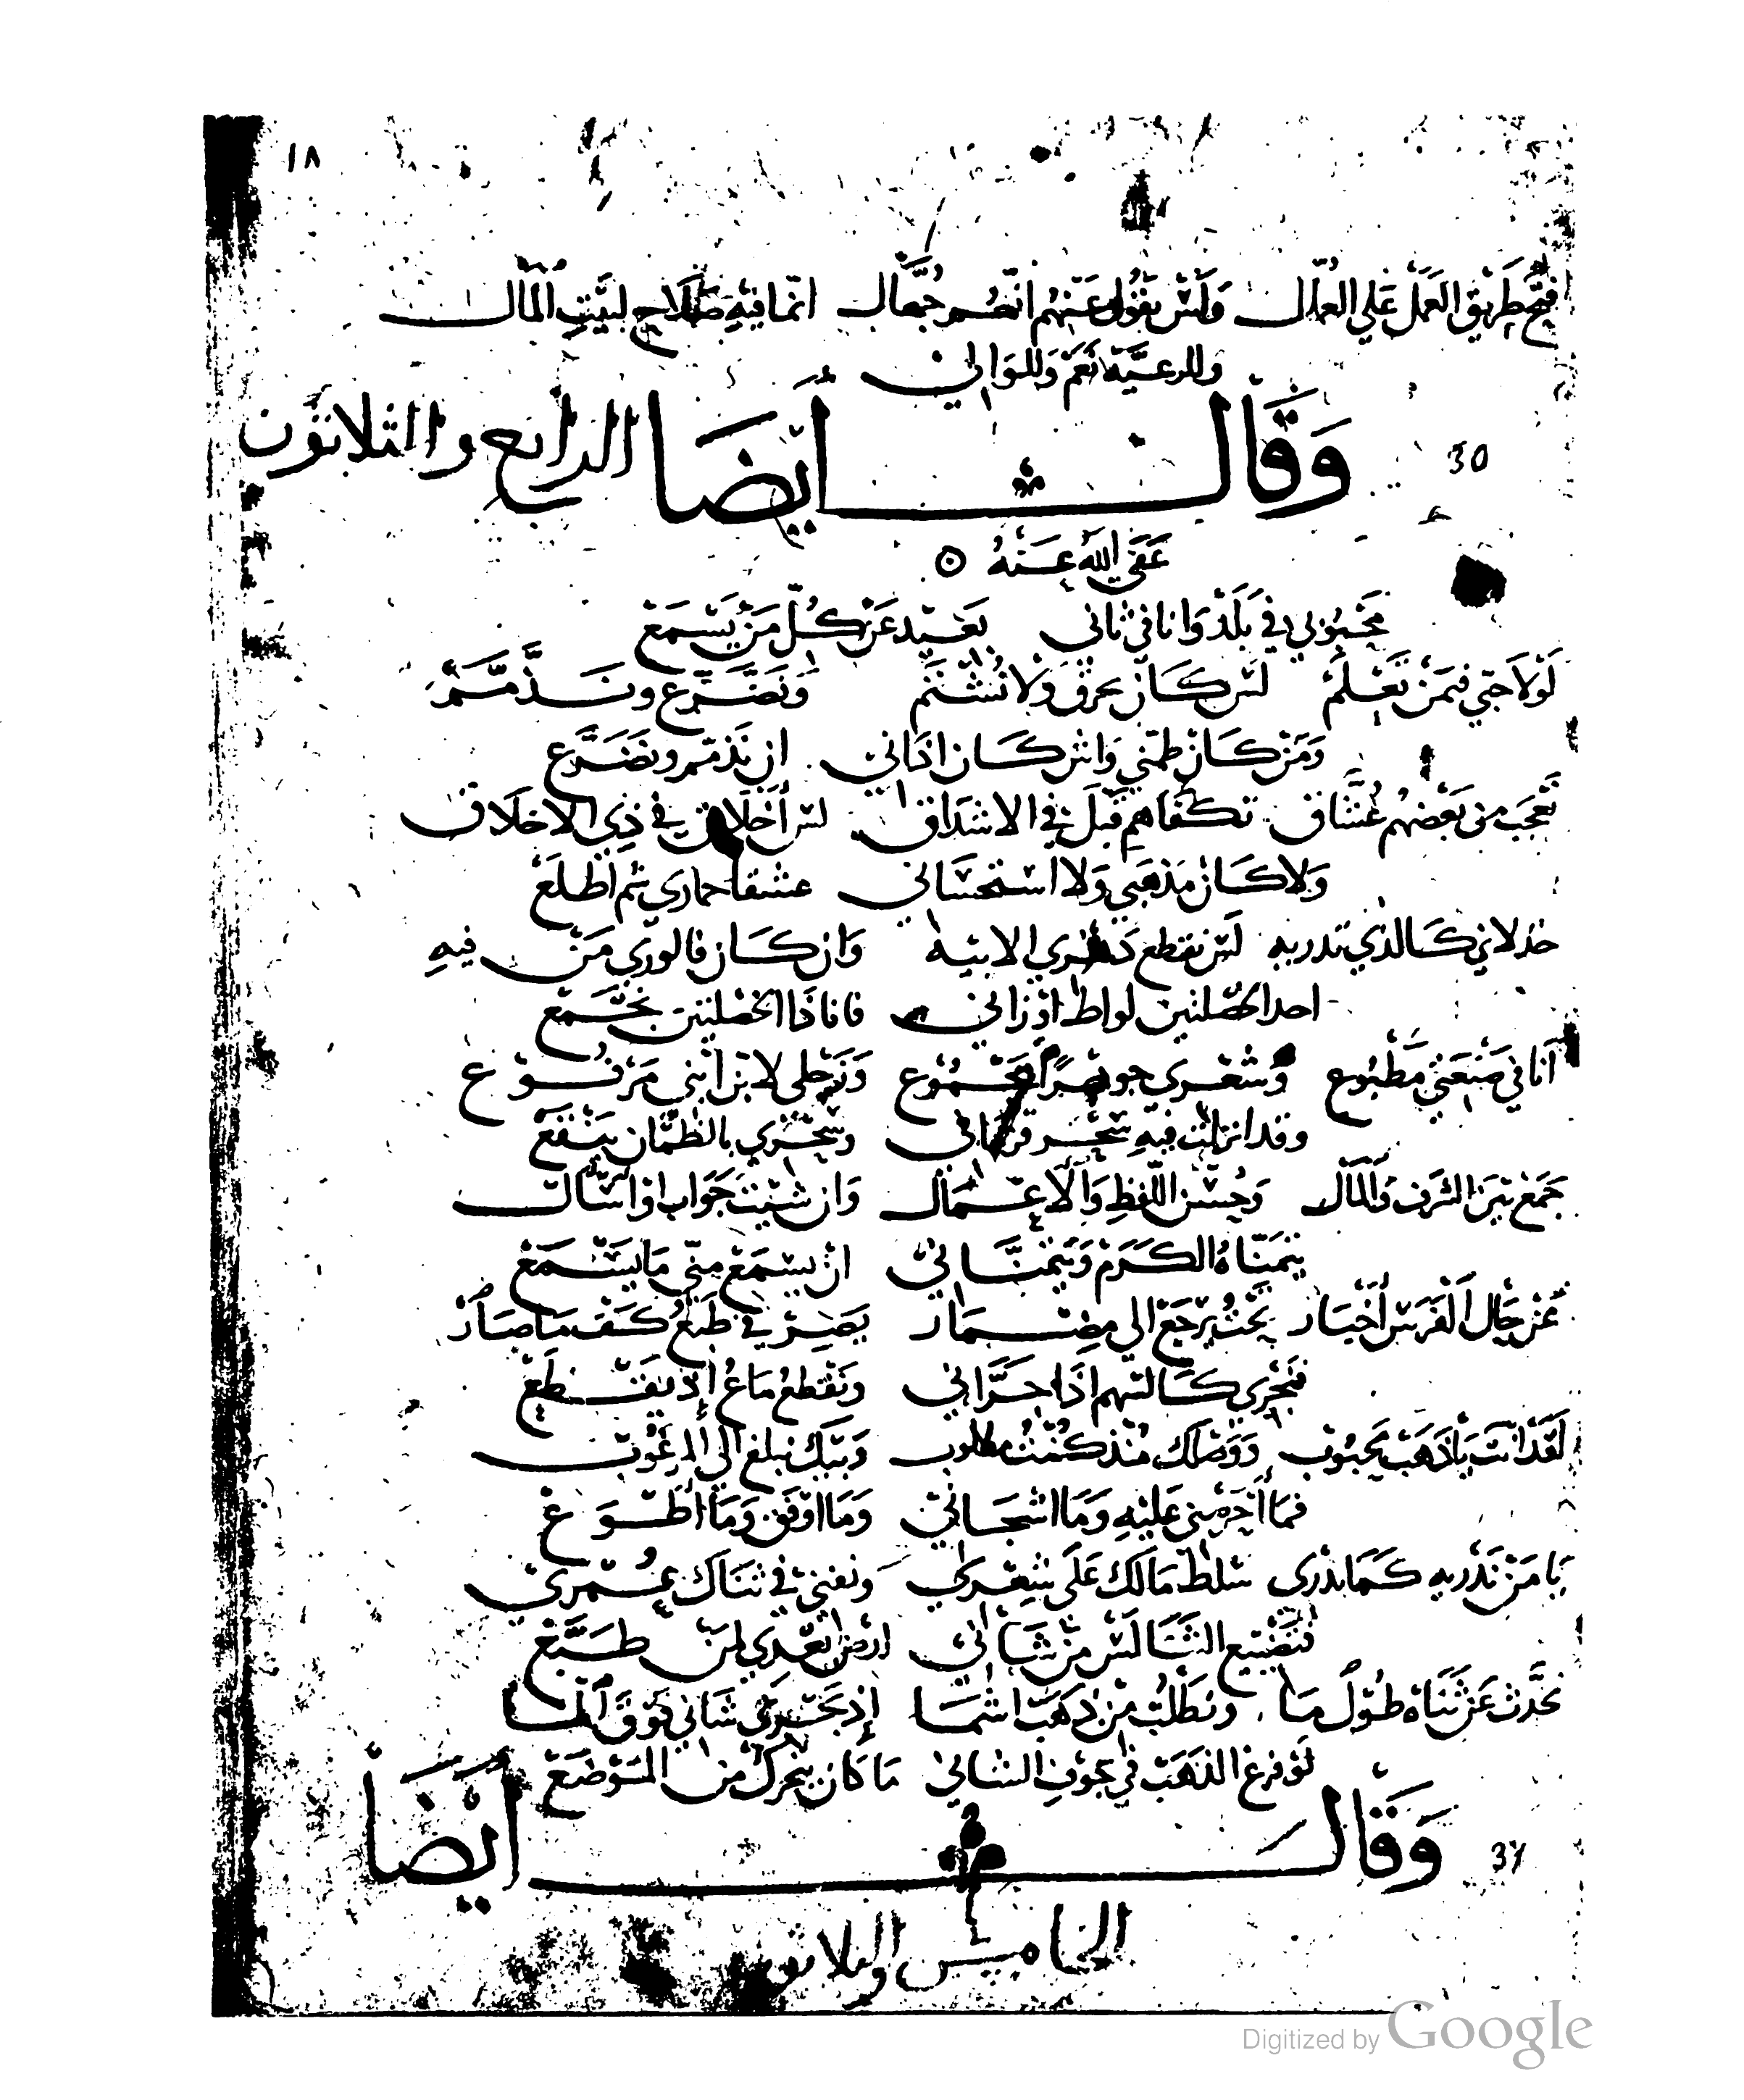 ١٨
فتح طريق العمل على العمال وليس يقول عنهم انهم جهال انما فيه صلاح لبيت المال
وللرعية نعم وللوالي
30 وقال أيضا الرابع والثلاثون
عفى الله عنه
محبوبي في بلد وانا في ثاني بعيد عن كل من يسمع
لولا حتى فيمن نعلم لس كان نحرق ولا نشتم ونضرع ونذمم
ومن كان طمني واش كان اذاني ان نذمم ونضرع
نعجب من بعضهم عشاق تكفاهم قبل في الاشداق لس أخلاق في ذي الاخلاق
ولا كان مذهبي ولا استحساني عشقا حماري ثم اطلع
خذلاني كالذي تدريه لس نقطع دهري الا بتيه وان كان فالورى من فيه
احد الخصلتين لواط اوزاني فانا ذا الخصلتين نجمع
انا في صنعتي مطبوع وشعري جوهرا مجموع وزجلي لا يزل بني مرفوع
وقد انزلت فيه سحر قرماني وسحري بالطمان ينفع
جمع بين الشرف والمال وحسن اللفظ والاعمال وان شيت جواب او اسال
يتمناه الكرم ويتمناني ان يسمع مني ما يسمع
عن حال الفرس أخبار بحث يرجع الى مضمار بصير في طبع كسف ما صار
فنجري كالسهم اذا جراني ونقطع ماع إذ يقطع
لقد انت يا ذهب محبوب ووصلك منذ كنت مطلوب وبيك نبلغ الى المرغوب
فما أخره بني عليه وما اشجاني وما اوفق وما أطوع
يا من ندريه كما يدرى سلط مالك على شعري ونفني في ثناك عمري
فنضيع الثنا لس من شاني ارض تعدي لمن طبع
نحدث عن ثناه طول ما ونطلب من ذهب اشما إذ نجري شاني فوق الما
لو فرغ الذهب في جوف الشاني ما كان يتحرك من الموضع
31 وقال أيضا
الخامس والثلاثون
Digitized by Google